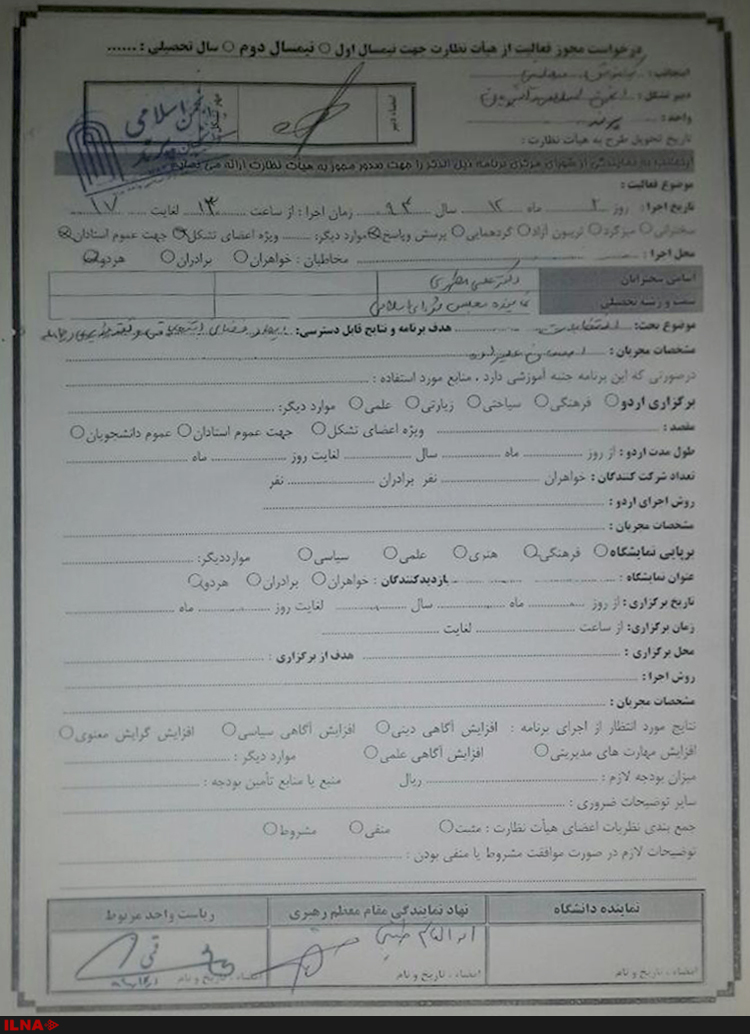 درخواست مجوز فعالیت از هیأت نظارت جهت نیمسال اول ○ نیمسال دوم ○ سال تحصیلی : ......
اینجانب :
دبیر تشکل : انجمن اسلامی
امضاء دبیر
انجمن اسلامی
واحد : پرند
تاریخ تحویل طرح به هیأت نظارت :
به نمایندگی از شورای مرکزی برنامه ذیل الذکر را جهت صدور مجوز به هیأت نظارت ارائه می نمایم
موضوع فعالیت :
تاریخ اجرا : روز ۲ ماه ۱۲ سال ۹۴ زمان اجرا : از ساعت ۱۳ لغایت ۱۷
سخنرانی ○ میزگرد ○ تریبون آزاد ○ گردهمایی ○ پرسش وپاسخ ○ موارد دیگر: ........ ویژه اعضای تشکل ○ جهت عموم استادان ○
محل اجرا : مخاطبان : خواهران ○ برادران ○ هردو ○
اسامی سخنرانان دکتر علی مطهری
سمت و رشته تحصیلی نماینده مجلس شورای اسلامی
موضوع بحث: انتخابات هدف برنامه و نتایج قابل دسترسی:
مشخصات مجریان :
درصورتی که این برنامه جنبه آموزشی دارد ، منابع مورد استفاده :
برگزاری اردو ○ فرهنگی ○ سیاحتی ○ زیارتی ○ علمی ○ موارد دیگر:
مقصد : ویژه اعضای تشکل ○ جهت عموم استادان ○ عموم دانشجویان ○
طول مدت اردو : از روز ماه سال لغایت روز ماه
تعداد شرکت کنندگان : خواهران نفر برادران نفر
روش اجرای اردو :
مشخصات مجریان :
برپایی نمایشگاه ○ فرهنگی ○ هنری ○ علمی ○ سیاسی ○ مواردديگر:
عنوان نمایشگاه : بازدیدکنندگان : خواهران ○ برادران ○ هردو ○
تاریخ برگزاری : از روز ماه سال لغایت روز ماه
زمان برگزاری: از ساعت لغایت
محل برگزاری : هدف از برگزاری :
روش اجرا :
مشخصات مجریان :
نتایج مورد انتظار از اجرای برنامه : افزایش آگاهی دینی ○ افزایش آگاهی سیاسی ○ افزایش گرایش معنوی ○
افزایش مهارت های مدیریتی ○ افزایش آگاهی علمی ○ موارد دیگر :
میزان بودجه لازم : ریال منبع یا منابع تأمین بودجه :
سایر توضیحات ضروری :
جمع بندی نظریات اعضای هیأت نظارت : مثبت ○ منفی ○ مشروط ○
توضیحات لازم در صورت موافقت مشروط یا منفی بودن :
نماینده دانشگاه نهاد نمایندگی مقام معظم رهبری ریاست واحد مربوط
امضاء ، تاریخ و نام امضاء ، تاریخ و نام امضاء ، تاریخ و نام
ILNA